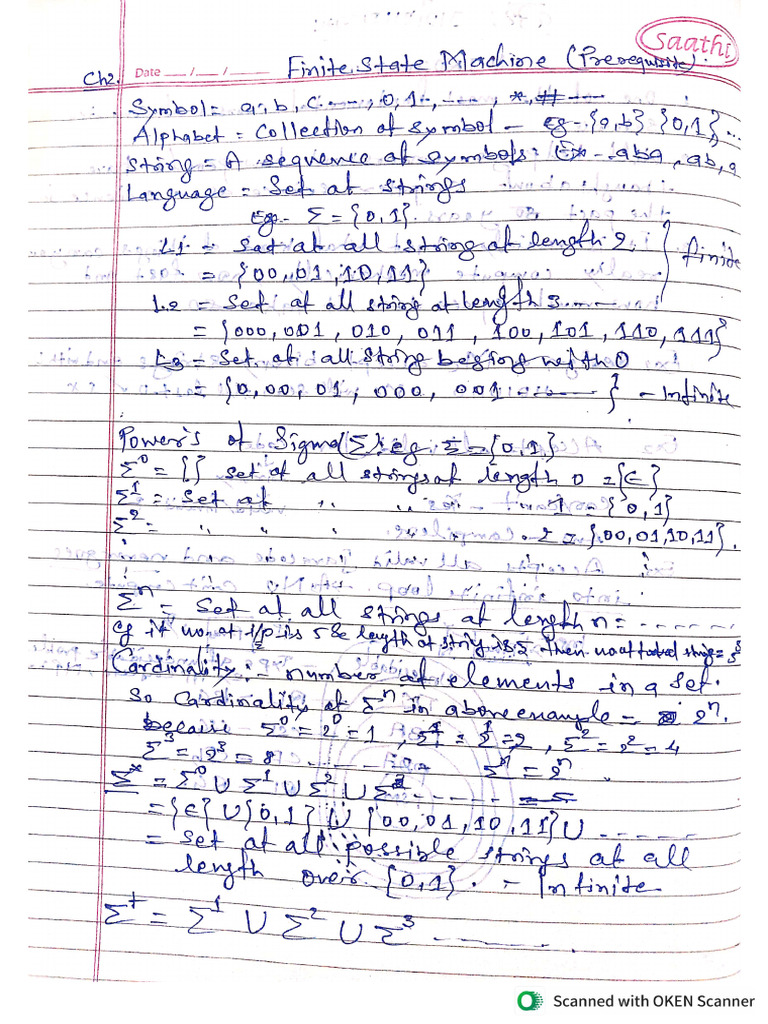 Saathi
Ch2. Date __/__/__ Finite State Machine (Prerequisite).
Symbol = a, b, c ---, 0, 1, ---, *, # ---
Alphabet = Collection of symbol - eg - {a, b} {0, 1} ...
String = A sequence of symbols: Ex - aba, ab, a
Language = Set of strings
Eg - Σ = {0, 1}.
L1 = Set of all string of length 2.
= {00, 01, 10, 11} } finite
L2 = Set of all string of length 3 ----
= {000, 001, 010, 011, 100, 101, 110, 111}
L3 = Set of all string begins with 0
= {0, 00, 01, 000, 001 ------ } - Infinite
Power's of Sigma (Σ): eg. Σ = {0, 1}
Σ⁰ = {} set of all strings of length 0 = {∈}
Σ¹ = Set of ,, ,, 1 = {0, 1}
Σ² = ,, ,, ,, 2 = {00, 01, 10, 11}.
Σⁿ = Set of all strings at length n = ------
eg if no. of i/p is 5 & length of string is 5 then no of total string =
Cardinality :- number of elements in a set.
So Cardinality of Σⁿ in above example = 2ⁿ.
because Σ⁰ = 2⁰ = 1, Σ¹ = = 2, Σ² = 2² = 4
Σ³ = 2³ = 8 ------ Σⁿ = 2ⁿ.
Σ* = Σ⁰ ∪ Σ¹ ∪ Σ² ∪ Σ³ ------
= {∈} ∪ {0, 1} ∪ {00, 01, 10, 11} ∪ ------
= Set of all possible strings of all
length over {0, 1}. - Infinite
Σ⁺ = Σ¹ ∪ Σ² ∪ Σ³ ------.
Scanned with OKEN Scanner